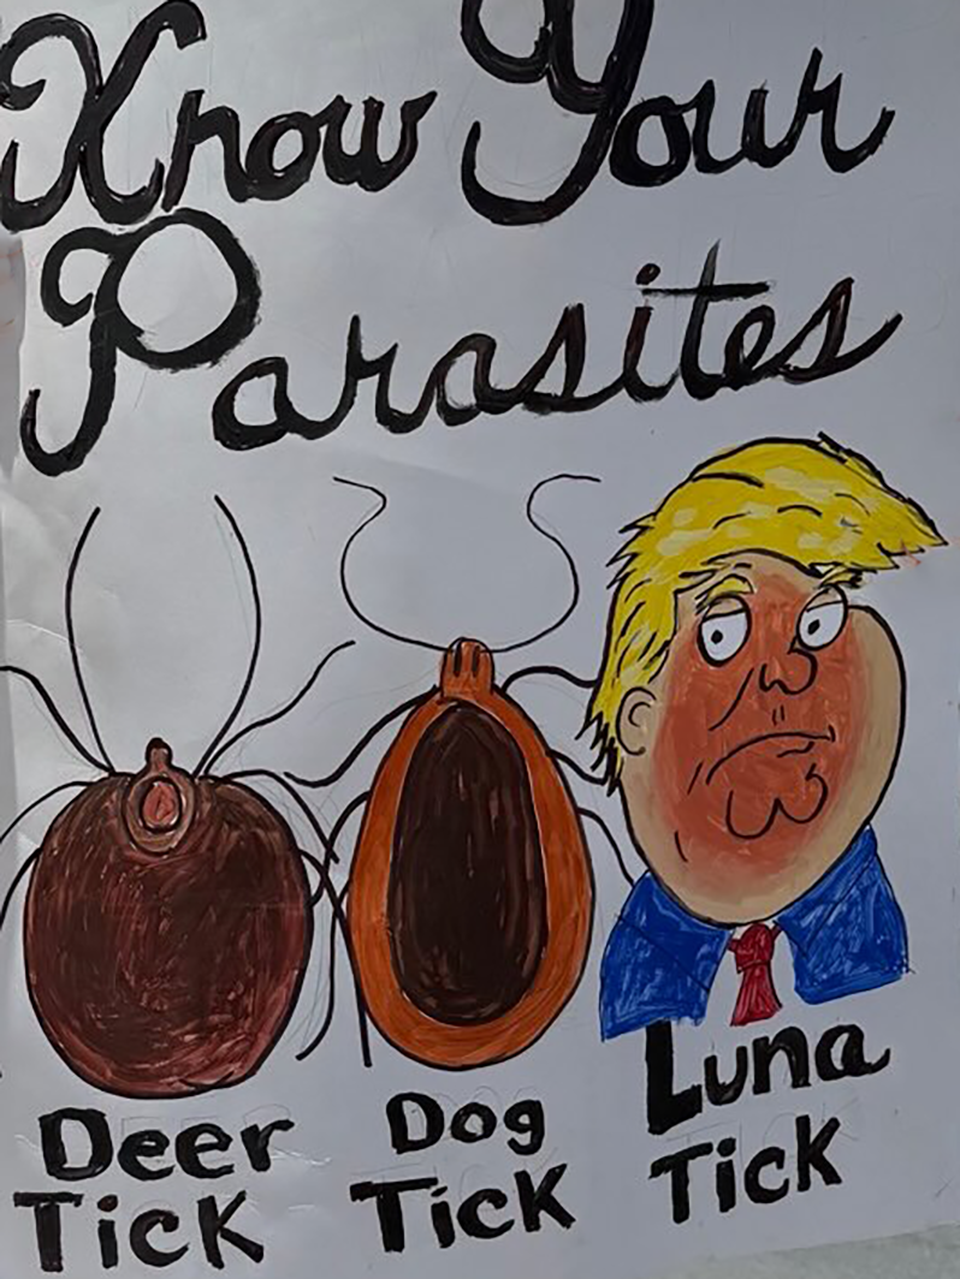 Know Your
Parasites
Deer
Tick
Dog
Tick
Luna
Tick